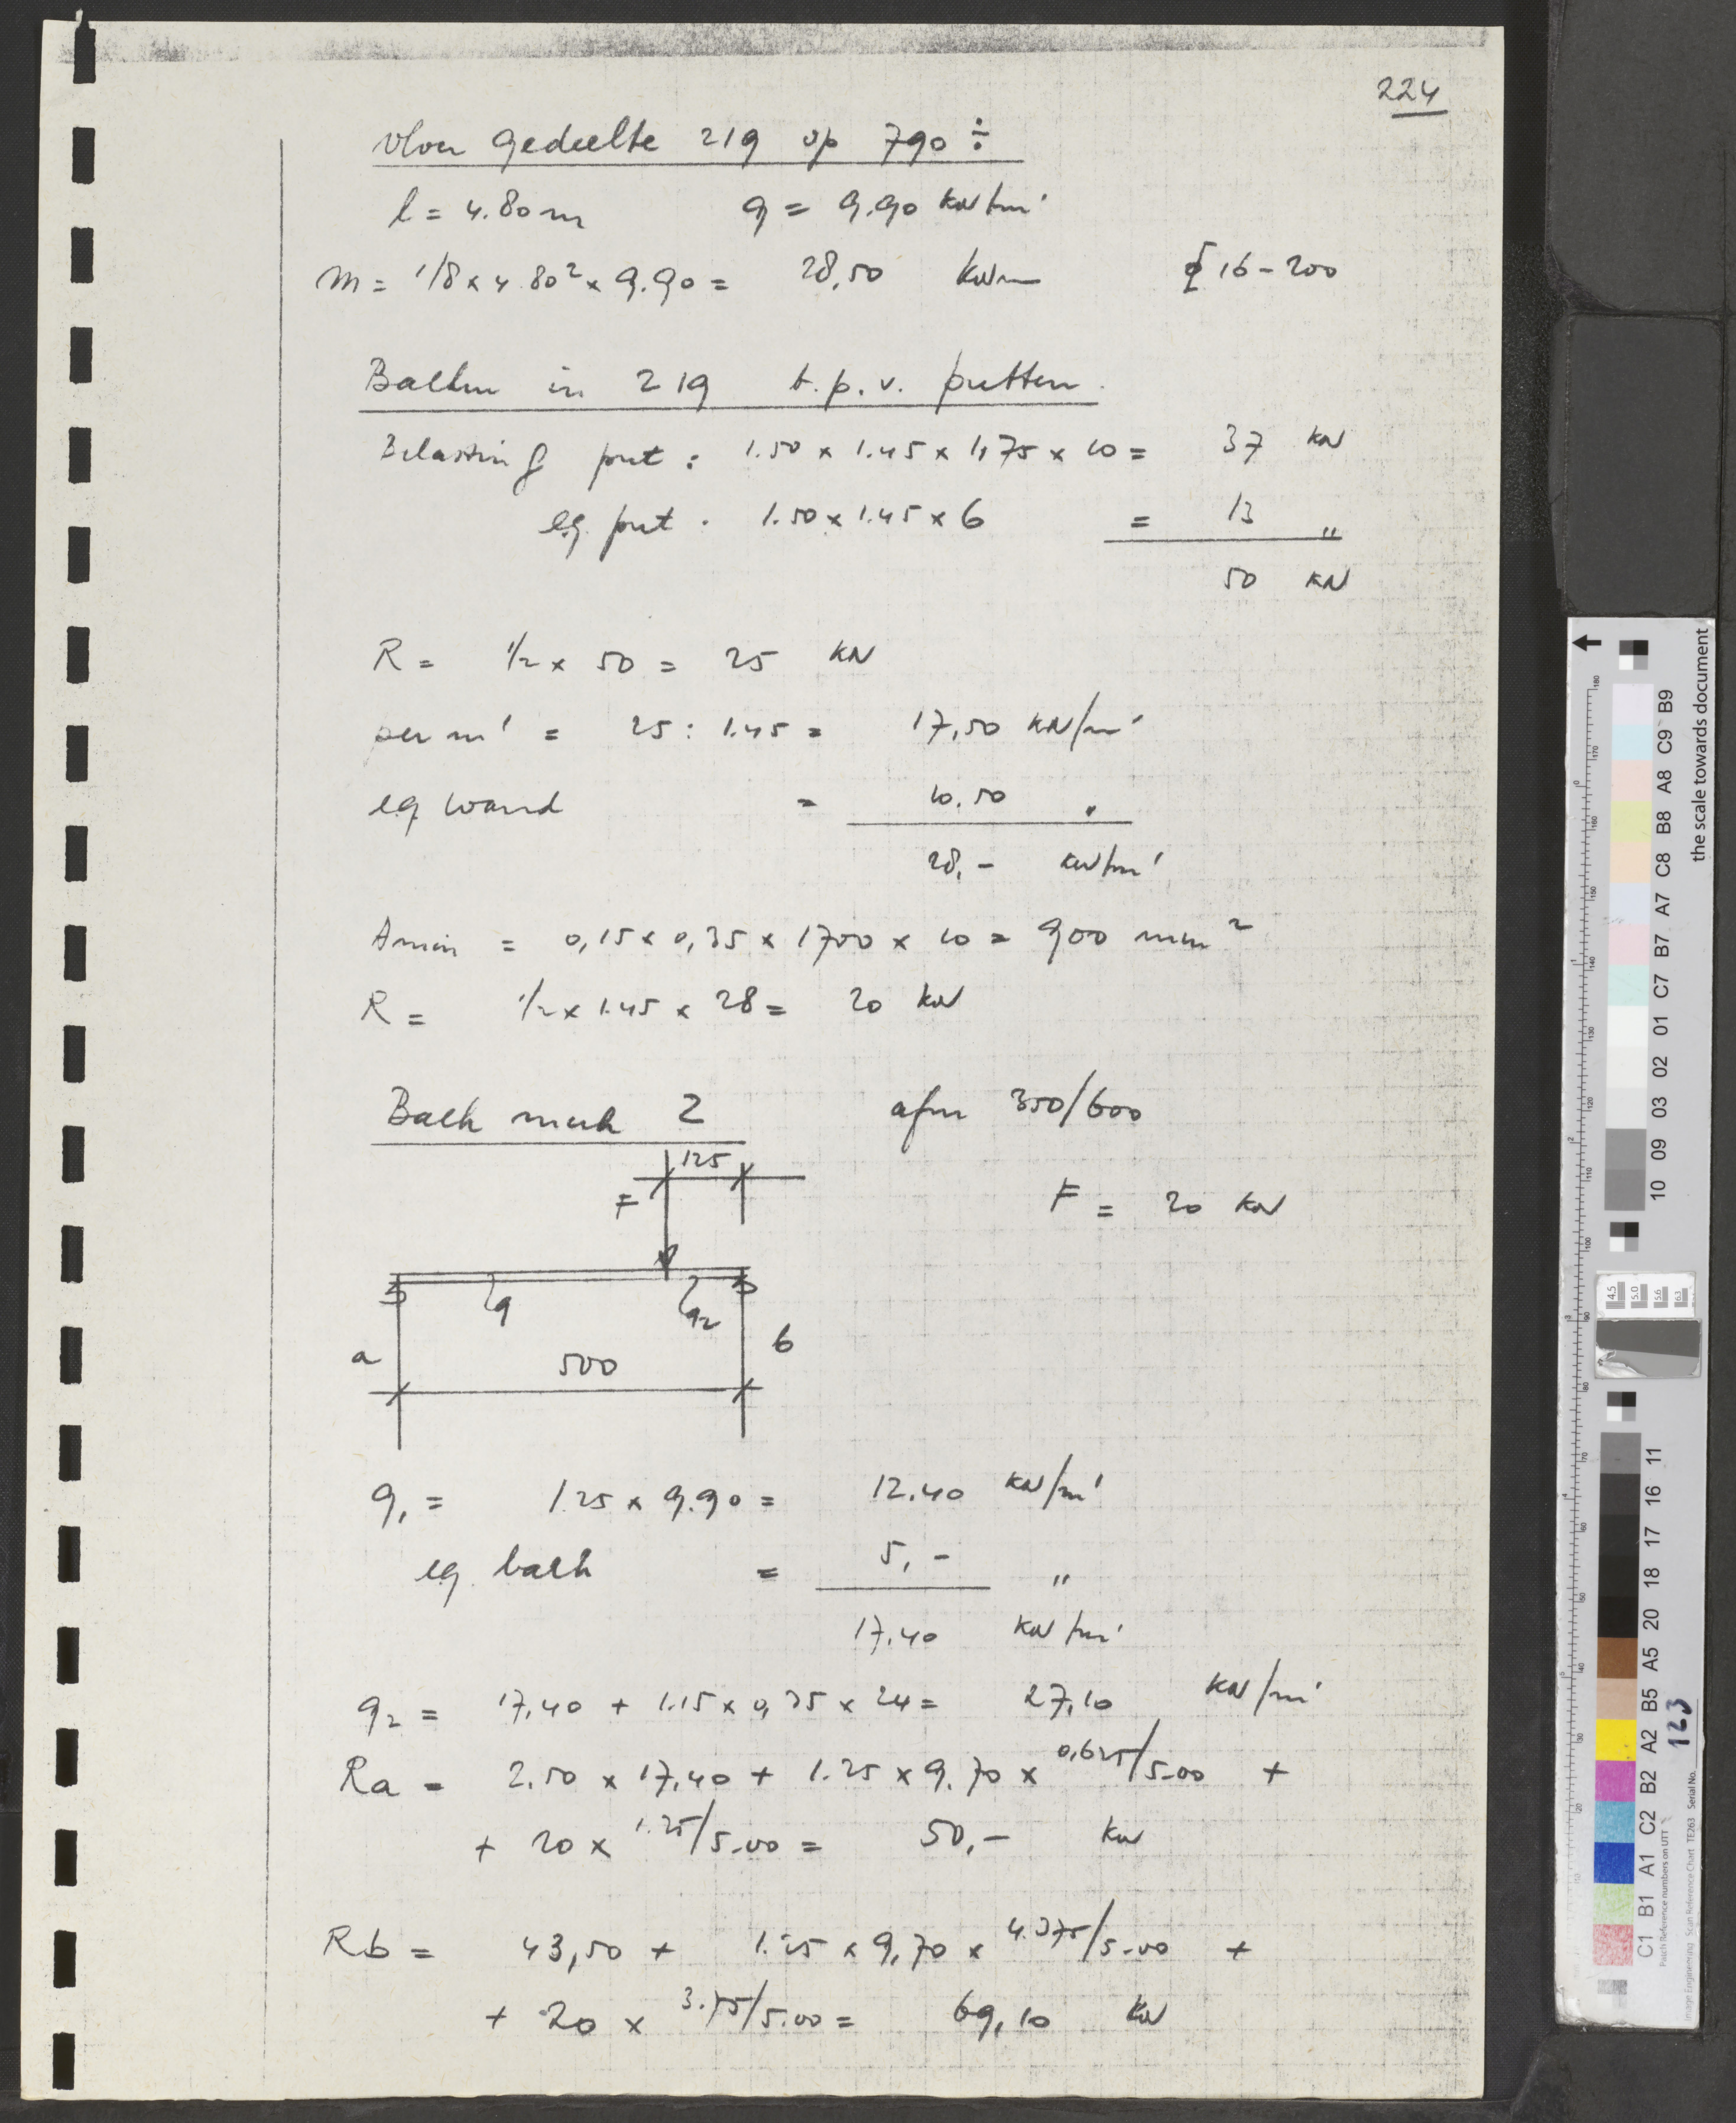 224
vloer gedeelte 219 op 790 ÷
l = 4.80 m q = 9.90 kN/m'
m = 1/8 x 4.80² x 9.90 = 28,50 kNm 16 - 200
Balken in 219 t.p.v. putten.
Belasting put : 1.50 x 1.45 x 1,75 x 10 = 37 kN
e.g. put . 1.50 x 1.45 x 6 = 13 "
50 kN
R = 1/2 x 50 = 25 kN
per m' = 25 : 1.45 = 17,50 kN/m'
eg wand = 10.50 "
28,- kN/m'
Amin = 0,15 x 0,35 x 1700 x 10 = 900 mm²
R = 1/2 x 1.45 x 28 = 20 kN
Balk merk 2 afm 350/600
125
F
F = 20 kN
q q2
a b
500
q1 = 1.25 x 9.90 = 12.40 kN/m'
eg. balk = 5,- "
17.40 kN/m'
q2 = 17,40 + 1.15 x 0,35 x 24 = 27,10 kN/m'
Ra = 2.50 x 17,40 + 1.25 x 9.70 x 0,625/5.00 +
+ 20 x 1.25/5.00 = 50,- kN
Rb = 43,50 + 1.25 x 9,70 x 4.375/5.00 +
+ 20 x 3.75/5.00 = 69,10 kN
the scale towards document
10 09 03 02 01 C7 B7 A7 C8 B8 A8 C9 B9
C1 B1 A1 C2 B2 A2 B5 A5 20 18 17 16 11
Patch Reference numbers on UTT
Image Engineering Scan Reference Chart TE263 Serial No. 123